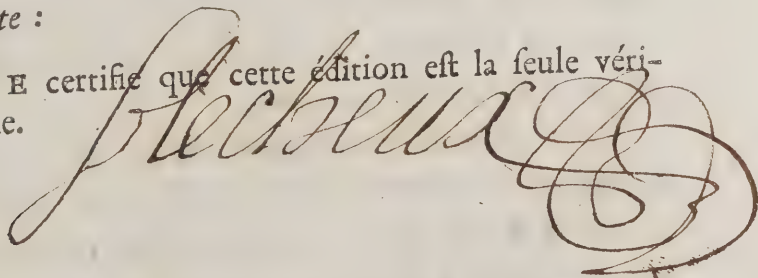 te :
E certifie que cette édition eſt la ſeule véri-
e.
Flecheux